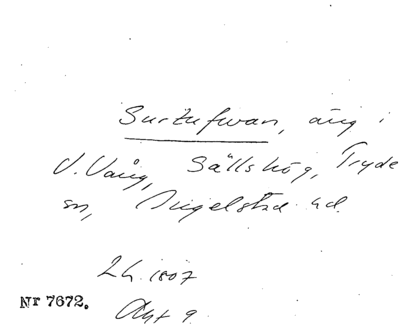 Surtufwan, äng i
V. Vång, Sällshög, Tryde
sn, Ingelstad hd.
LH. 1807
Akt 9.
Nr 7672.